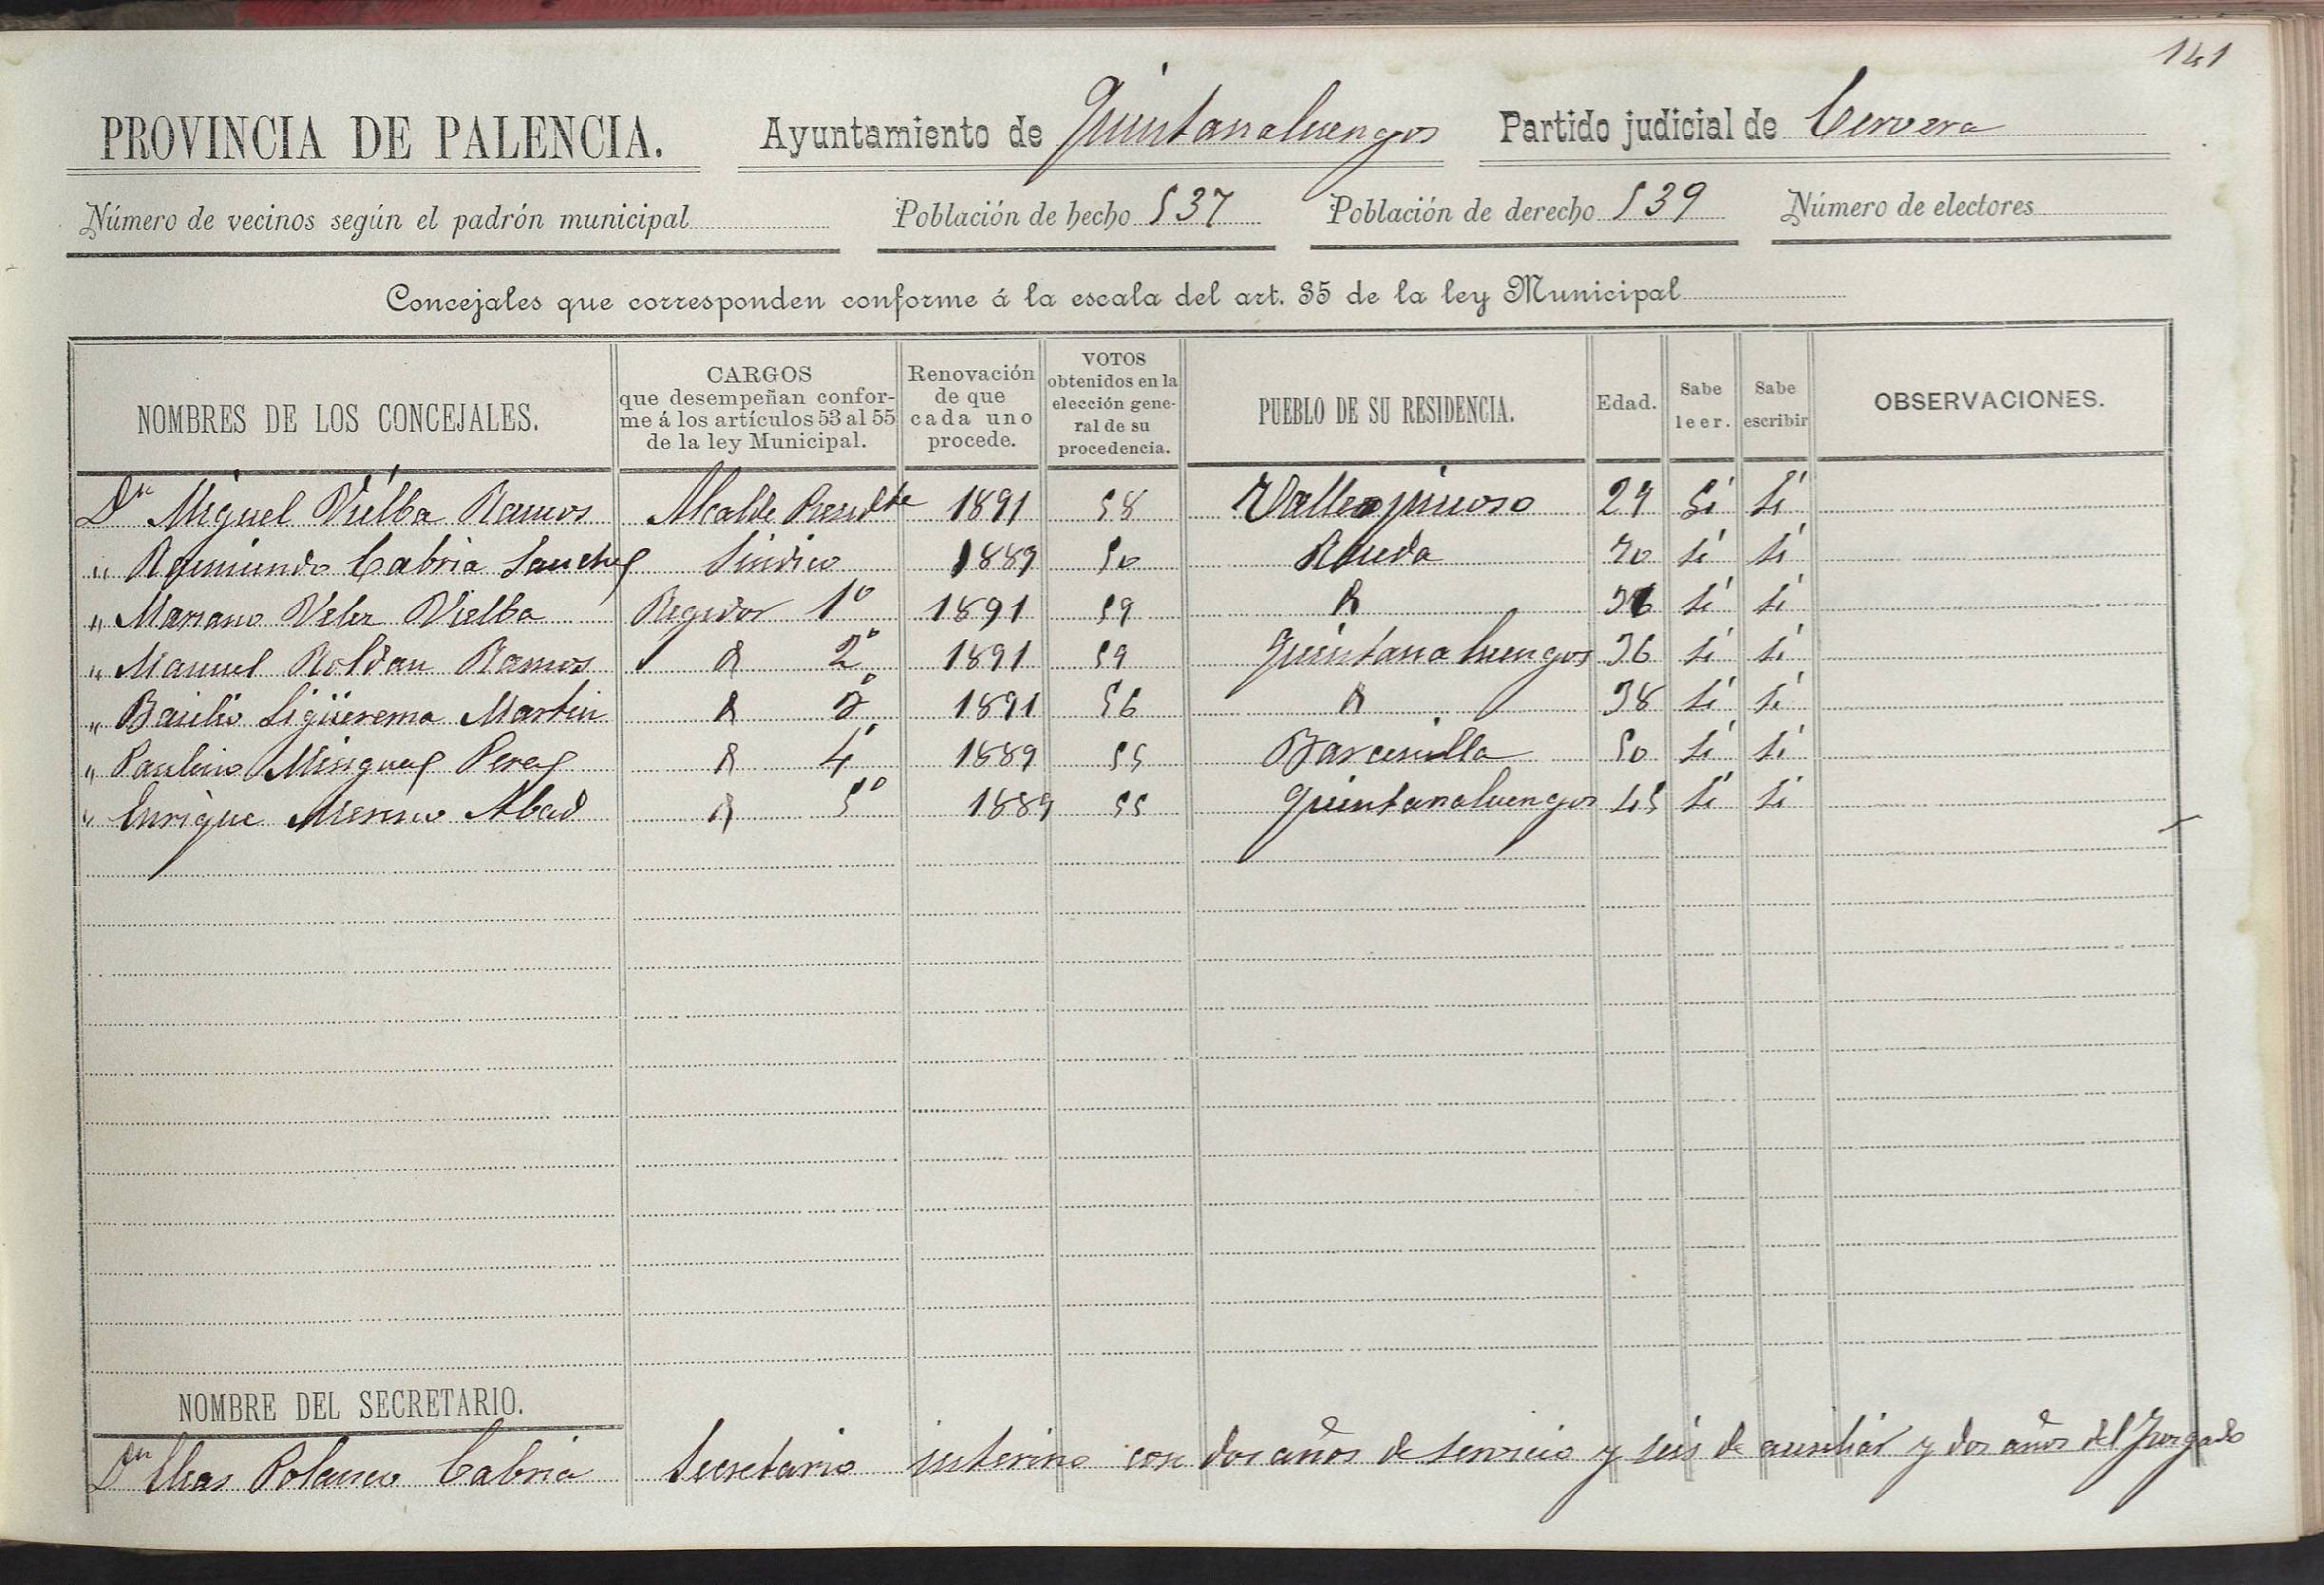 141
PROVINCIA DE PALENCIA. Ayuntamiento de Quintanaluengos Partido judicial de Cervera
Número de vecinos según el padrón municipal Población de hecho 537 Población de derecho 539 Número de electores
Concejales que corresponden conforme á la escala del art. 35 de la ley Municipal
NOMBRES DE LOS CONCEJALES.
CARGOS
que desempeñan confor-
me á los artículos 53 al 55
de la ley Municipal.
Renovación
de que
cada uno
procede.
VOTOS
obtenidos en la
elección gene-
ral de su
procedencia.
PUEBLO DE SU RESIDENCIA.
Edad.
Sabe
leer.
Sabe
escribir
OBSERVACIONES.
Dn Miguel Vielba Ramos Alcalde 1891 58 Vallespinoso 29 Sí Sí
" Raimundo Cabria Sanchez Sindico 1889 50 Rueda 70 Sí Sí
" Mariano Velez Vielba Regidor 1º 1891 59 Sí Sí
" Manuel Roldan Ramos 2º 1891 59 Quintanaluengos 36 Sí Sí
" Basilio Sigüerema Martin 3º 1891 56 38 Sí Sí
" Paulino Minguez Perez 4º 1889 55 Barcenilla 50 Sí Sí
" Enrique Merino Abad 5º 1889 55 Quintanaluengos 45 Sí Sí
NOMBRE DEL SECRETARIO.
Dn Elias Polanco Cabria Secretario interino con dos años de servicio y seis de auxiliar y dos años del Juzgado